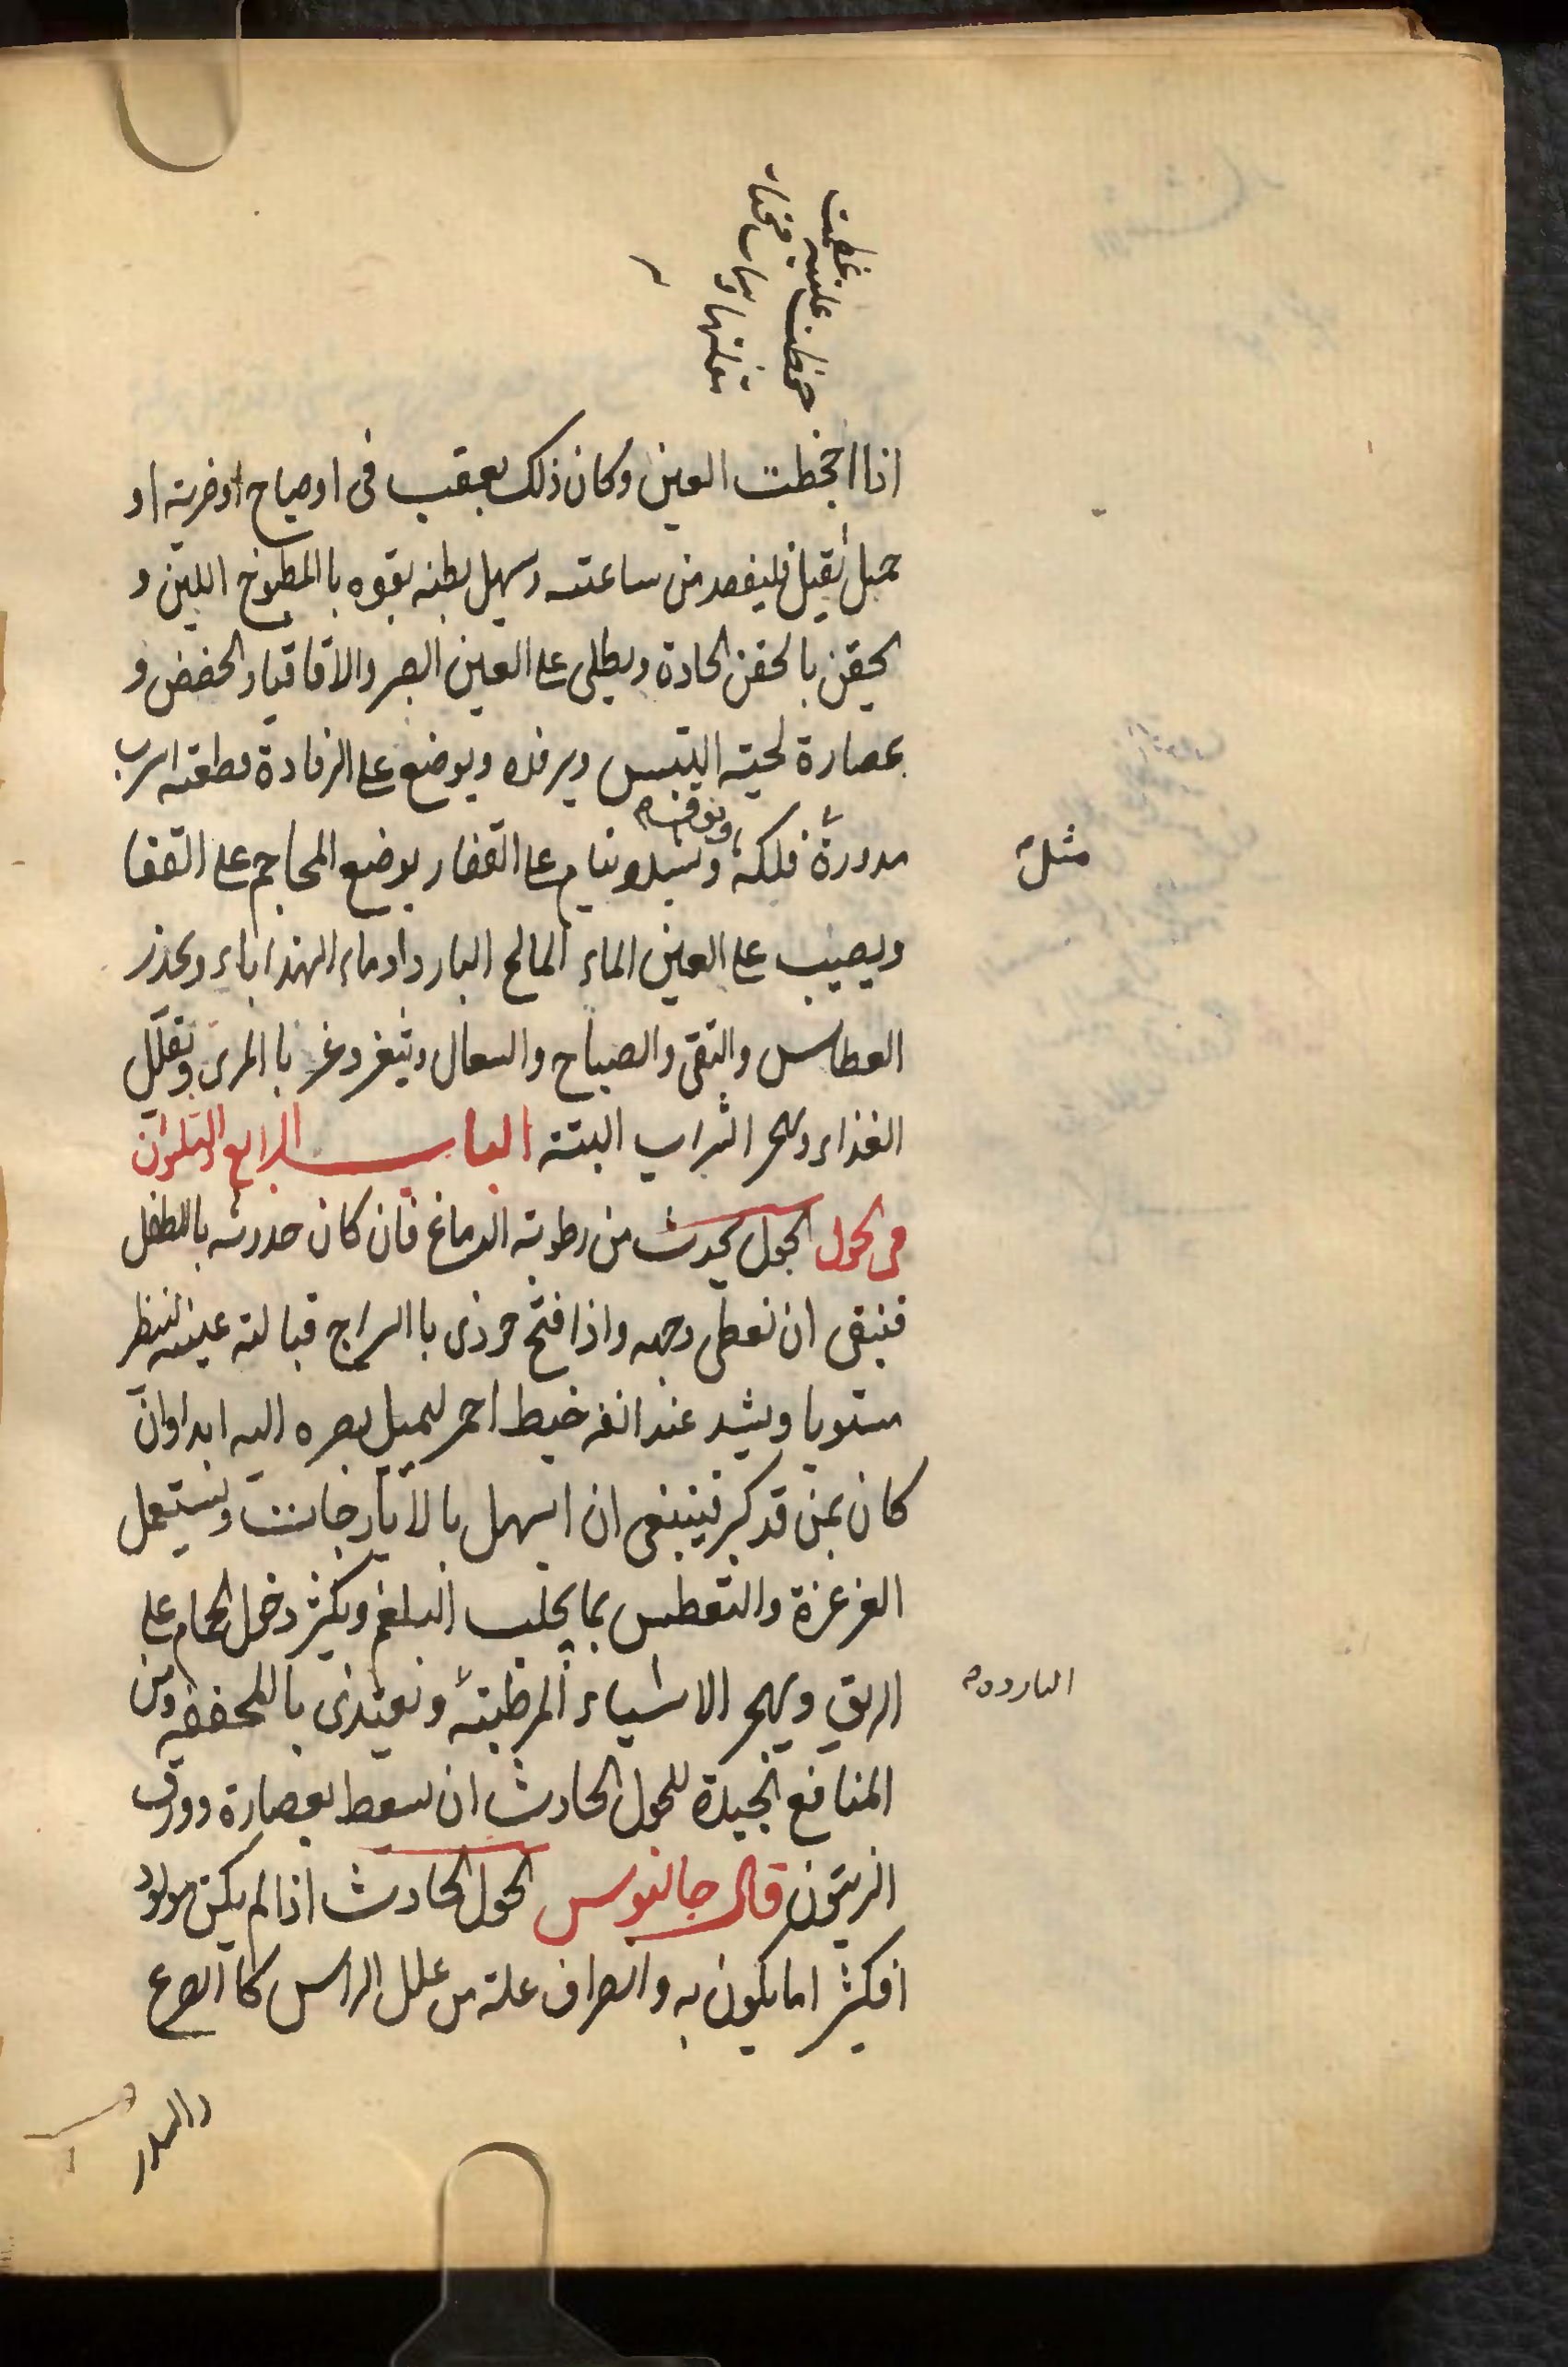 اذا اجخطت العين وكان ذلك بعقب قى او صياح او ضربة او
حمل ثقيل فليفصد من ساعته وسهل بطنه بقوه بالمطبوخ اللين و
يحقن بالحقن الحادة ويطلى على العين الصبر والاقاقيا والحضض و
بعصارة لحية التيس ويرفده ويوضع على الرفادة قطعة اسرب
مدورة فلكة ويشد وينام على القفا ويوضع المحاجم على القفا
مثل
ويصيب على العين الماء المالح البارد او ماء الهنداباء ويحذر
العطاس والقى والصياح والسعال ويتغرغر با المرى ويقلل
الغذاء ويهجر الشراب البتة الباب الرابع والثلثون
فى الحول الحول يحدث من رطوبة الدماغ فان كان حدوثه باالطفل
فينبقى ان نعطى وجهه واذا فتح حوذى باالسراج قبالته عينه لينظر
مستويا ويشد عند انفه خيط احمر ليميل بصره اليه ابدا وان
كان بمن قد كبر فينبغى ان اسهل بالايارجات ويستعمل
الغرغرة والتعطس بما يجلب البلغم ويكثر دخول الحمام على
الريق ويهجر الاشياء المرطبة ويغتذى باالمجففه ومن
الباردة
المنافع الجيدة للحول الحادث ان يسعط بعصارة وورق
الزيتون قال جالنوس الحول الحادث اذا لم يكن مولود
افكثر اما يكون به وانصراف علة من علل الراس كا الصرع
والسدر